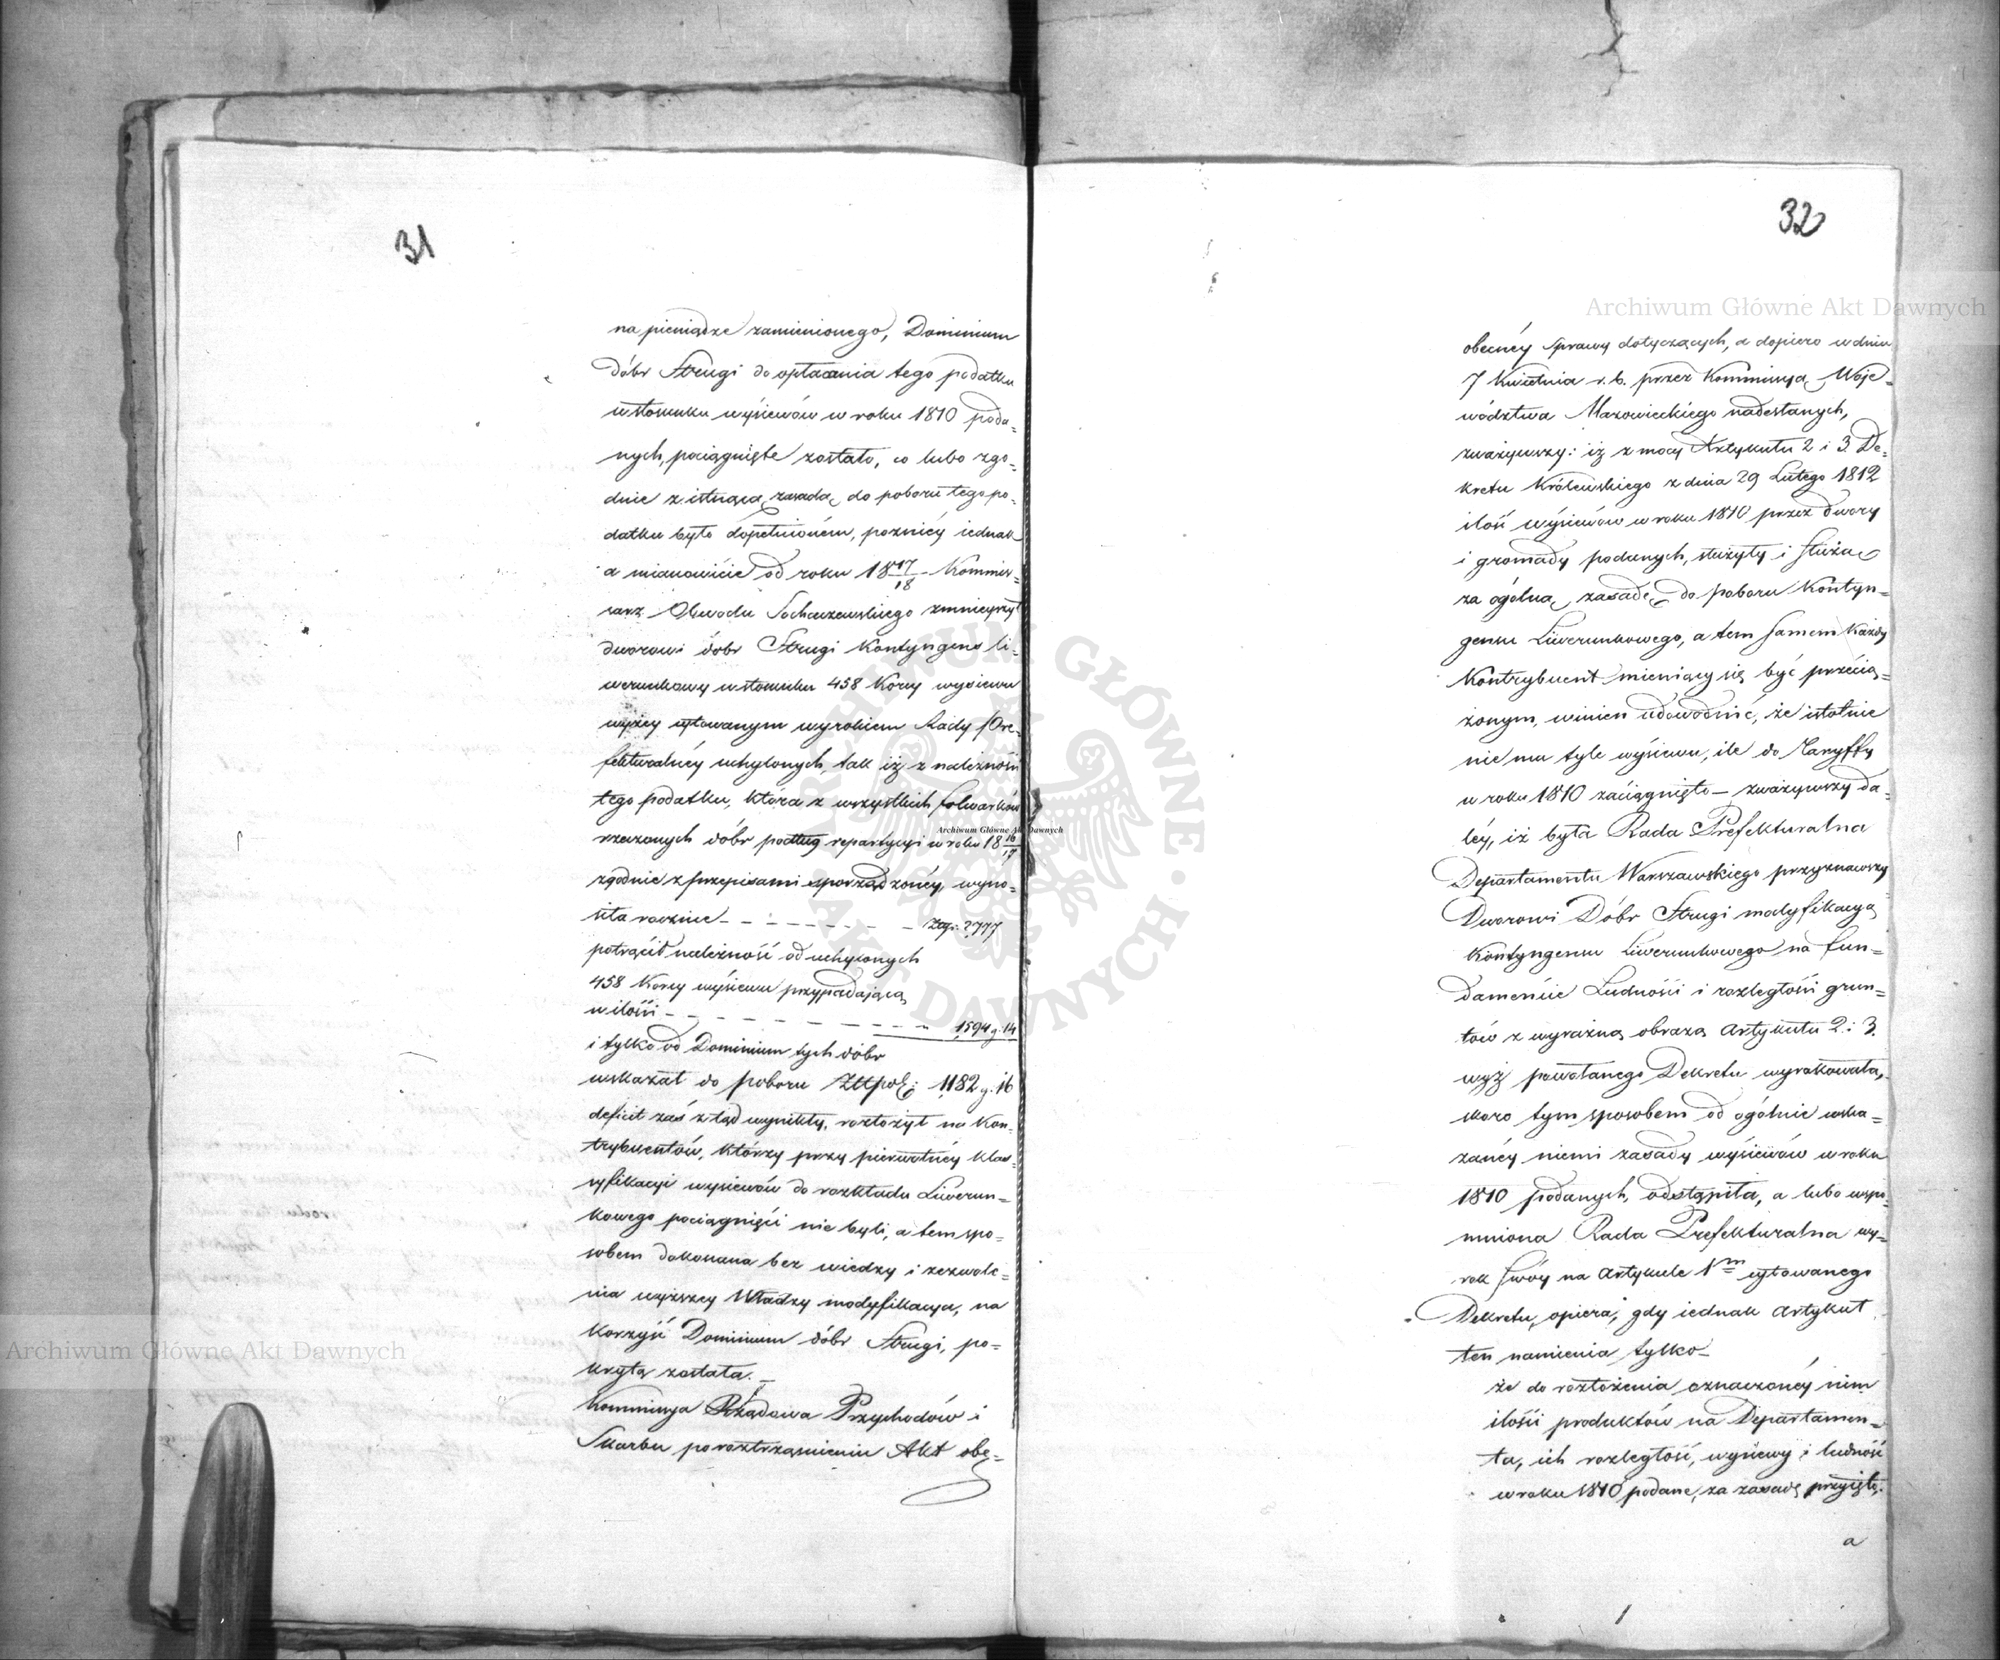 31
na pieniądze zamienionego, Dominium
dóbr Strugi do opłacania tego podatku
w stosunku wysiewów w roku 1810 poda=
nych, pociągnięte zostało, co lubo zgo=
dnie z istnącą zasadą do poboru tego po=
datku było dopełnioném, pozniéy iednak
a mianowicie od roku 18 17/18 Kommis=
sarz Obwodu Sochaczewskiego zmnieyszył
dworowi dóbr Strugi Kontyngens li=
werunkowy w stosunku 458 Korcy wysiewu
wyżey cytowanym wyrokiem Rady Pre=
fekturalnéy uchylonych, tak iż z należności
tego podatku, która z wszystkich folwarków
rzeczonych dóbr podług repartycyi w roku 18 16/17
zgodnie z przepisami sporządzonéy, wyno=
siła rocznie – – – – – – – – Złp. 2777
potrącił należność od uchylonych
458 Korcy wysiewu przypadającą
w ilości – – – – – – – – „ 1594 g. 14
i tylko od Dominium tych dóbr
wskazał do poboru Złłpol: 1182 g. 16
deficit zaś ztąd wynikły, rozłożył na Kon=
trybuentów, którzy przy pierwotnéy klas=
syfikacyi wysiewów do rozkładu Liwerun=
kowego pociągnięci nie byli, a tem spo=
sobem dokonana bez wiedzy i zezwole=
nia wyższey Władzy modyfikacya, na
korzyść Dominium dóbr Strugi, po=
krytą została. –
Kommissya Rządowa Przychodów i
Skarbu po roztrząśnieniu Akt obe=
32
obecnéy sprawy dotyczących, a dopiero w dniu
7 Kwietnia r. b. przez Kommissyą Woje=
wództwa Mazowieckiego nadesłanych,
zważywszy: iż z mocy Artykułu 2 i 3. De=
kretu Królewskiego z dnia 29 Lutego 1812
ilość wysiewów w roku 1810 przez dwory
i gromady podanych, służyły i służą
za ogólną zasadę do poboru Kontyn=
gensu Liwerunkowego, a tem samem każdy
Kontrybuent mieniący się być przecią=
żonym, winien udowodnić, że istotnie
nie ma tyle wysiewu, ile do Taryffy
w roku 1810 zaciągnięto – zważywszy da=
léy, iż była Rada Prefekturalna
Departamentu Warszawskiego przyznawszy
Dworowi Dóbr Strugi modyfikacyą
Kontyngensu Liwerunkowego na fun=
damencie Ludności i rozległości grun=
tów z wyraźną obrazą Artykułu 2. i 3.
wyż powołanego Dekretu wyrokowała,
skoro tym sposobem od ogólnie wska=
zanéy niemi zasady wysiewów w roku
1810 podanych, odstąpiła, a lubo wspo=
mniona Rada Prefekturalna wy=
rok swóy na Artykule 1m cytowanego
Dekretu, opiera, gdy iednak Artykuł
ten namienia tylko –
że do rozłożenia oznaczonéy nim
ilości produktów na Departamen=
ta, ich rozległość, wysiewy i ludność
w roku 1810 podane, za zasadę przyięto.
a
Archiwum Główne Akt Dawnych
Archiwum Główne Akt Dawnych
Archiwum Główne Akt Dawnych
ARCHIWUM GŁÓWNE • AKT DAWNYCH •